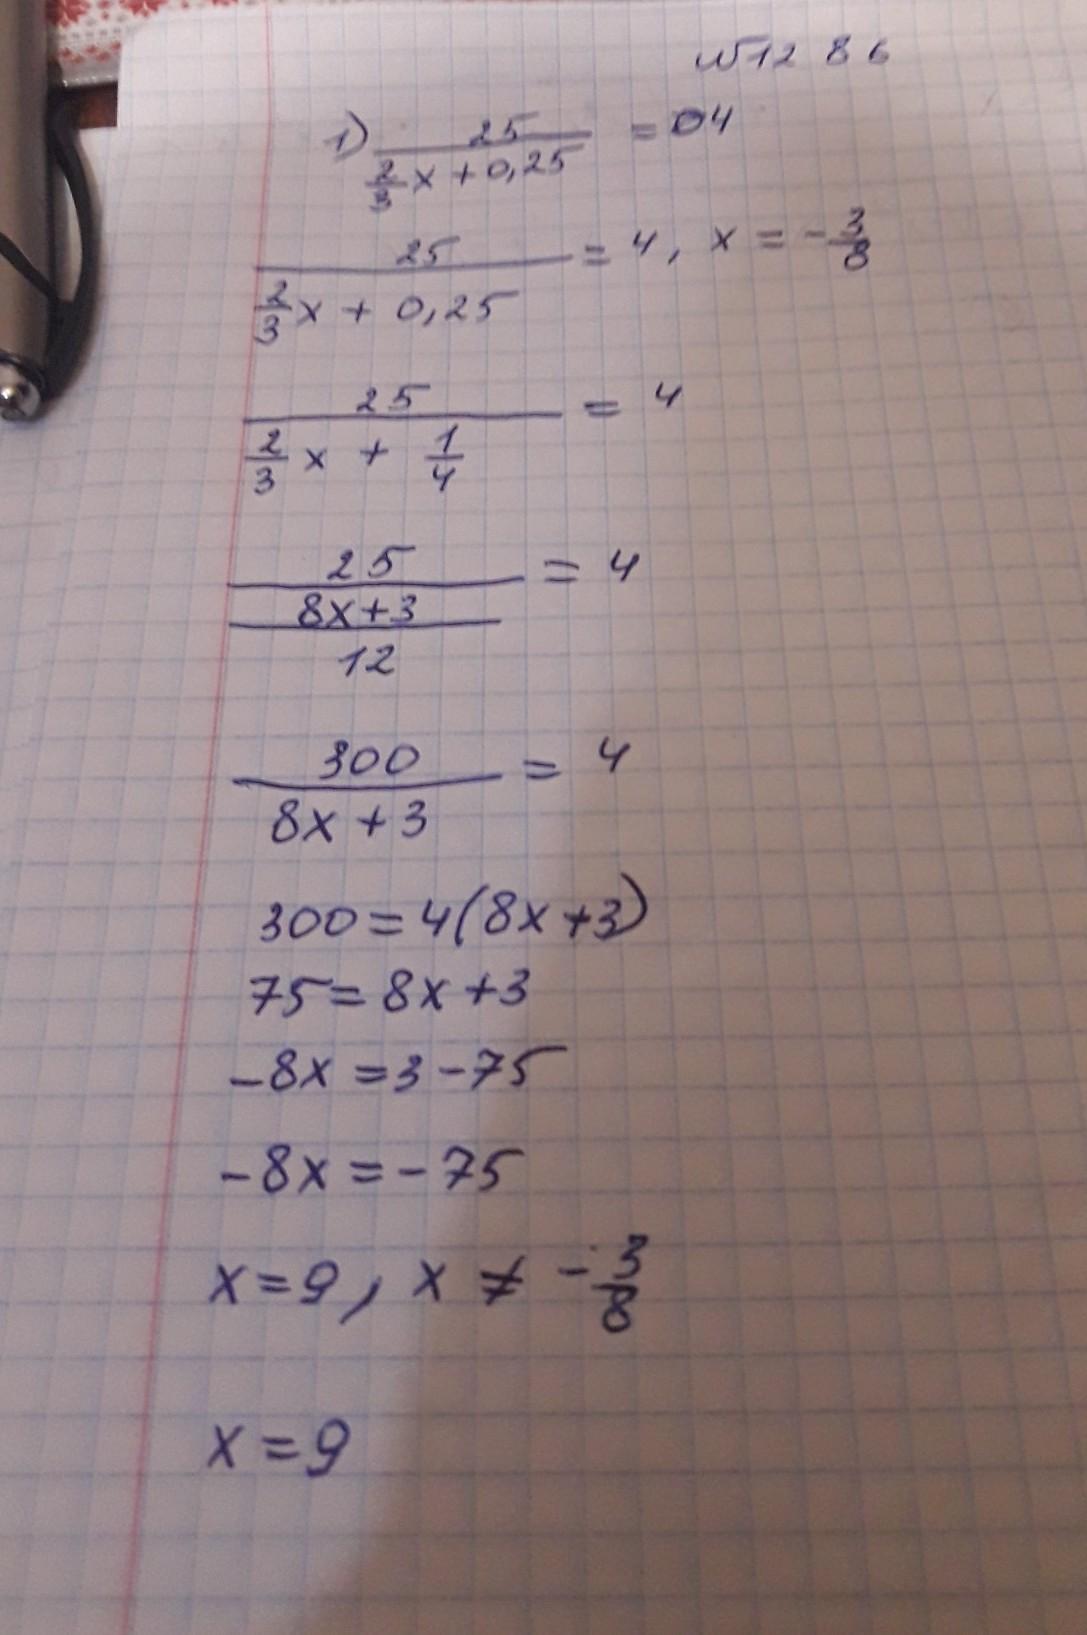 №1286
1) 25/(2/3 x + 0,25) = 04
25/(2/3 x + 0,25) = 4, x = -3/8
25/(2/3 x + 1/4) = 4
25/((8x+3)/12) = 4
300/(8x+3) = 4
300=4(8x+3)
75=8x+3
-8x=3-75
-8x=-75
x=9, x ≠ -3/8
x=9